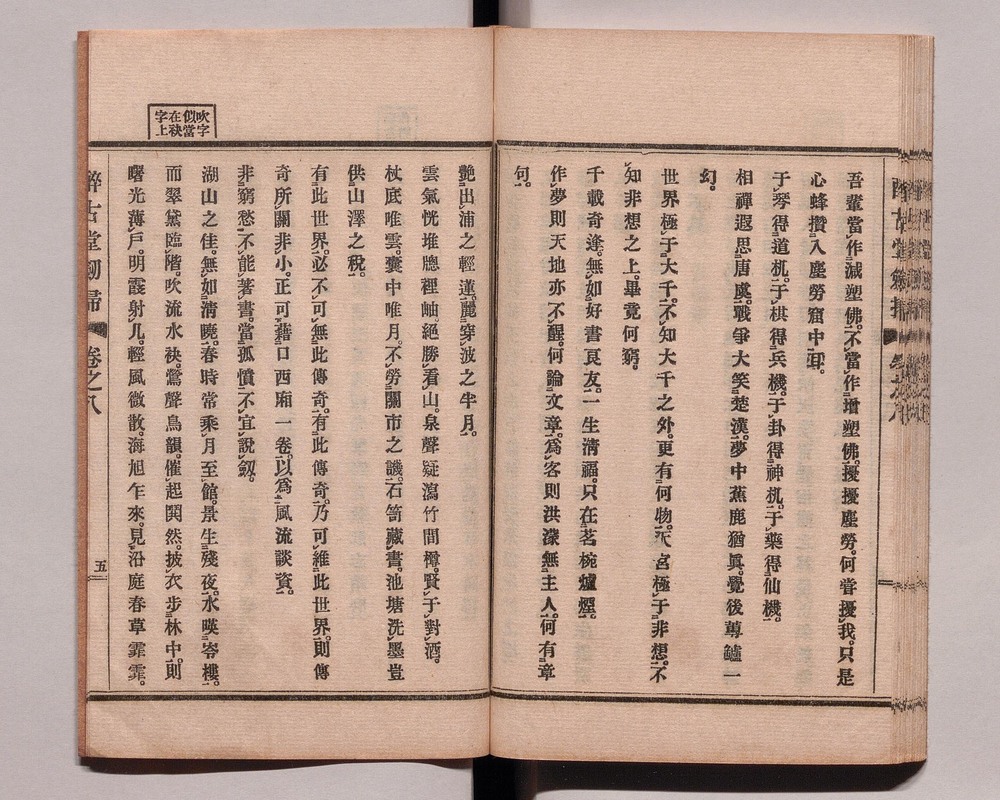 吾輩當作減塑佛。不當作增塑佛。擾擾塵勞。何嘗擾我。只是
心蜂攢入塵勞窟中耳。
于琴得道机。于棋得兵機。于卦得神机。于藥得仙機。
相禪遐思唐虞。戰爭大笑楚漢。夢中蕉鹿猶眞。覺後蓴鱸一
幻。
世界極于大千。不知大千之外。更有何物。天宮極于非想。不
知非想之上。畢竟何窮。
千載奇逢。無如好書良友。一生淸福。只在茗椀爐煙。
作夢則天地亦不醒。何論文章。爲客則洪濛無主人。何有章
句。
艶出浦之輕蓮。麗穿波之半月。
雲氣恍堆牕裡岫。絕勝看山。泉聲疑瀉竹間樽。賢于對酒。
杖底唯雲。囊中唯月。不勞關市之譏。石笥藏書。池塘洗墨。豈
供山澤之稅。
有此世界。必不可無此傳奇。有此傳奇。乃可維此世界。則傳
奇所關非小。正可藉口西廂一卷。以爲風流談資。
非窮愁不能著書。當孤憤不宜說劔。
湖山之佳。無如淸曉。春時常乘月至館。景生殘夜。水暎岑樓。
而翠黛臨階。吹流水袂。鶯聲鳥韻。催起閧然。披衣步林中。則
曙光薄戶。明霞射几。輕風微散。海旭乍來。見沿庭春草霏霏。
吹字
似當
在袂
字上
醉古堂劒掃 卷之八
五